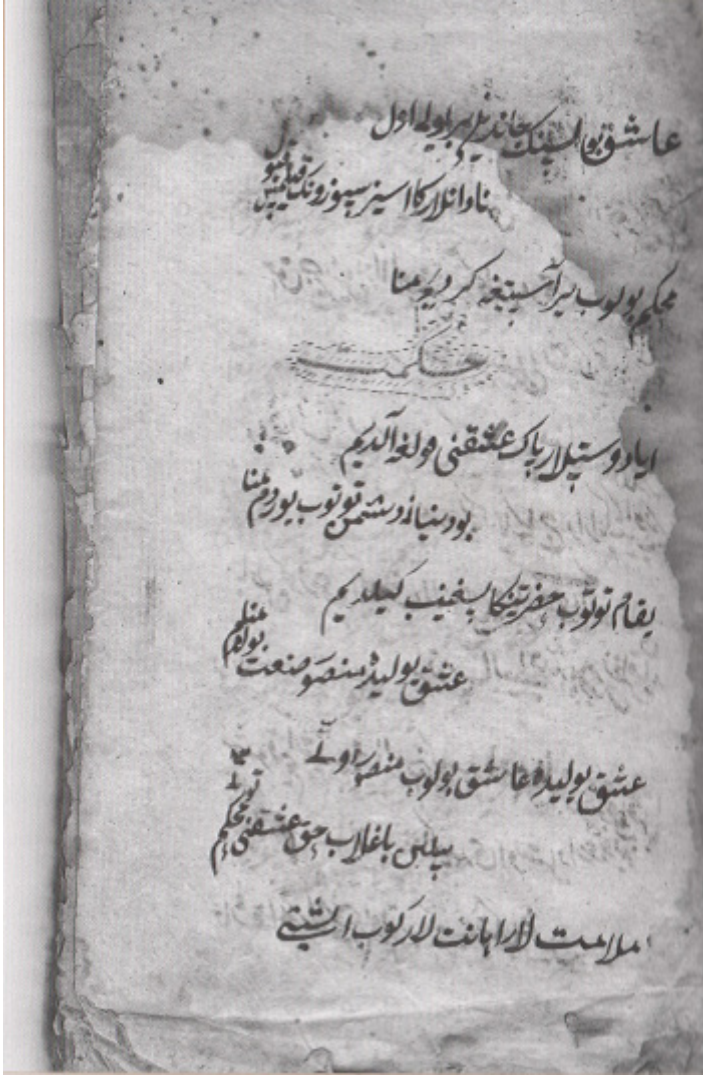 عاشق بولسنک جاندین کیچ بیر یوله اول
نادانلارکا اسیز سوزونک قیلمه قبول
محکم بولوب بیر آستیغه کردیم منا
حکمت
ایا دوستلار پاک عشقنی قولغه آلدیم
بو دنیانی دشمن توتوب یوردم منا
یقام توتوب حضرتینکا سغنیب کیلدیم
عشق یولیده منصور صفت بولدم منا
عشق یولیده عاشق بولوب منصور اوتی
بیلین باغلاب حق عشقنی محکم توتی
ملامت لار اهانت لار کوب ایشتی